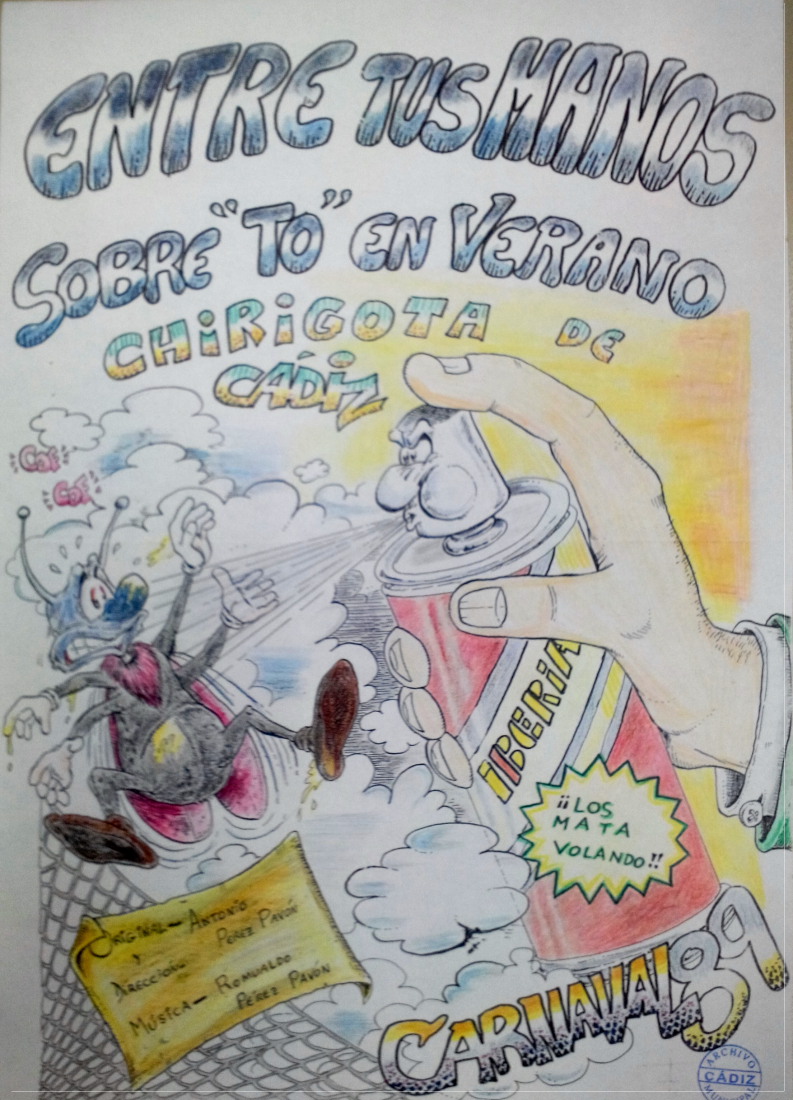 ENTRE TUS MANOS
SOBRE "TO" EN VERANO
CHiRiGOTA DE
CÁDiZ
COF
COF
iBERiA
¡¡LOS
MATA
VOLANDO!!
ORIGINAL - ANTONIO
PEREZ PAVÓN
Y
DIRECCIÓN
MÚSICA - ROMUALDO
PÉREZ PAVÓN
CARNAVAL 89
ARCHIVO
CÁDIZ
MUNICIPAL